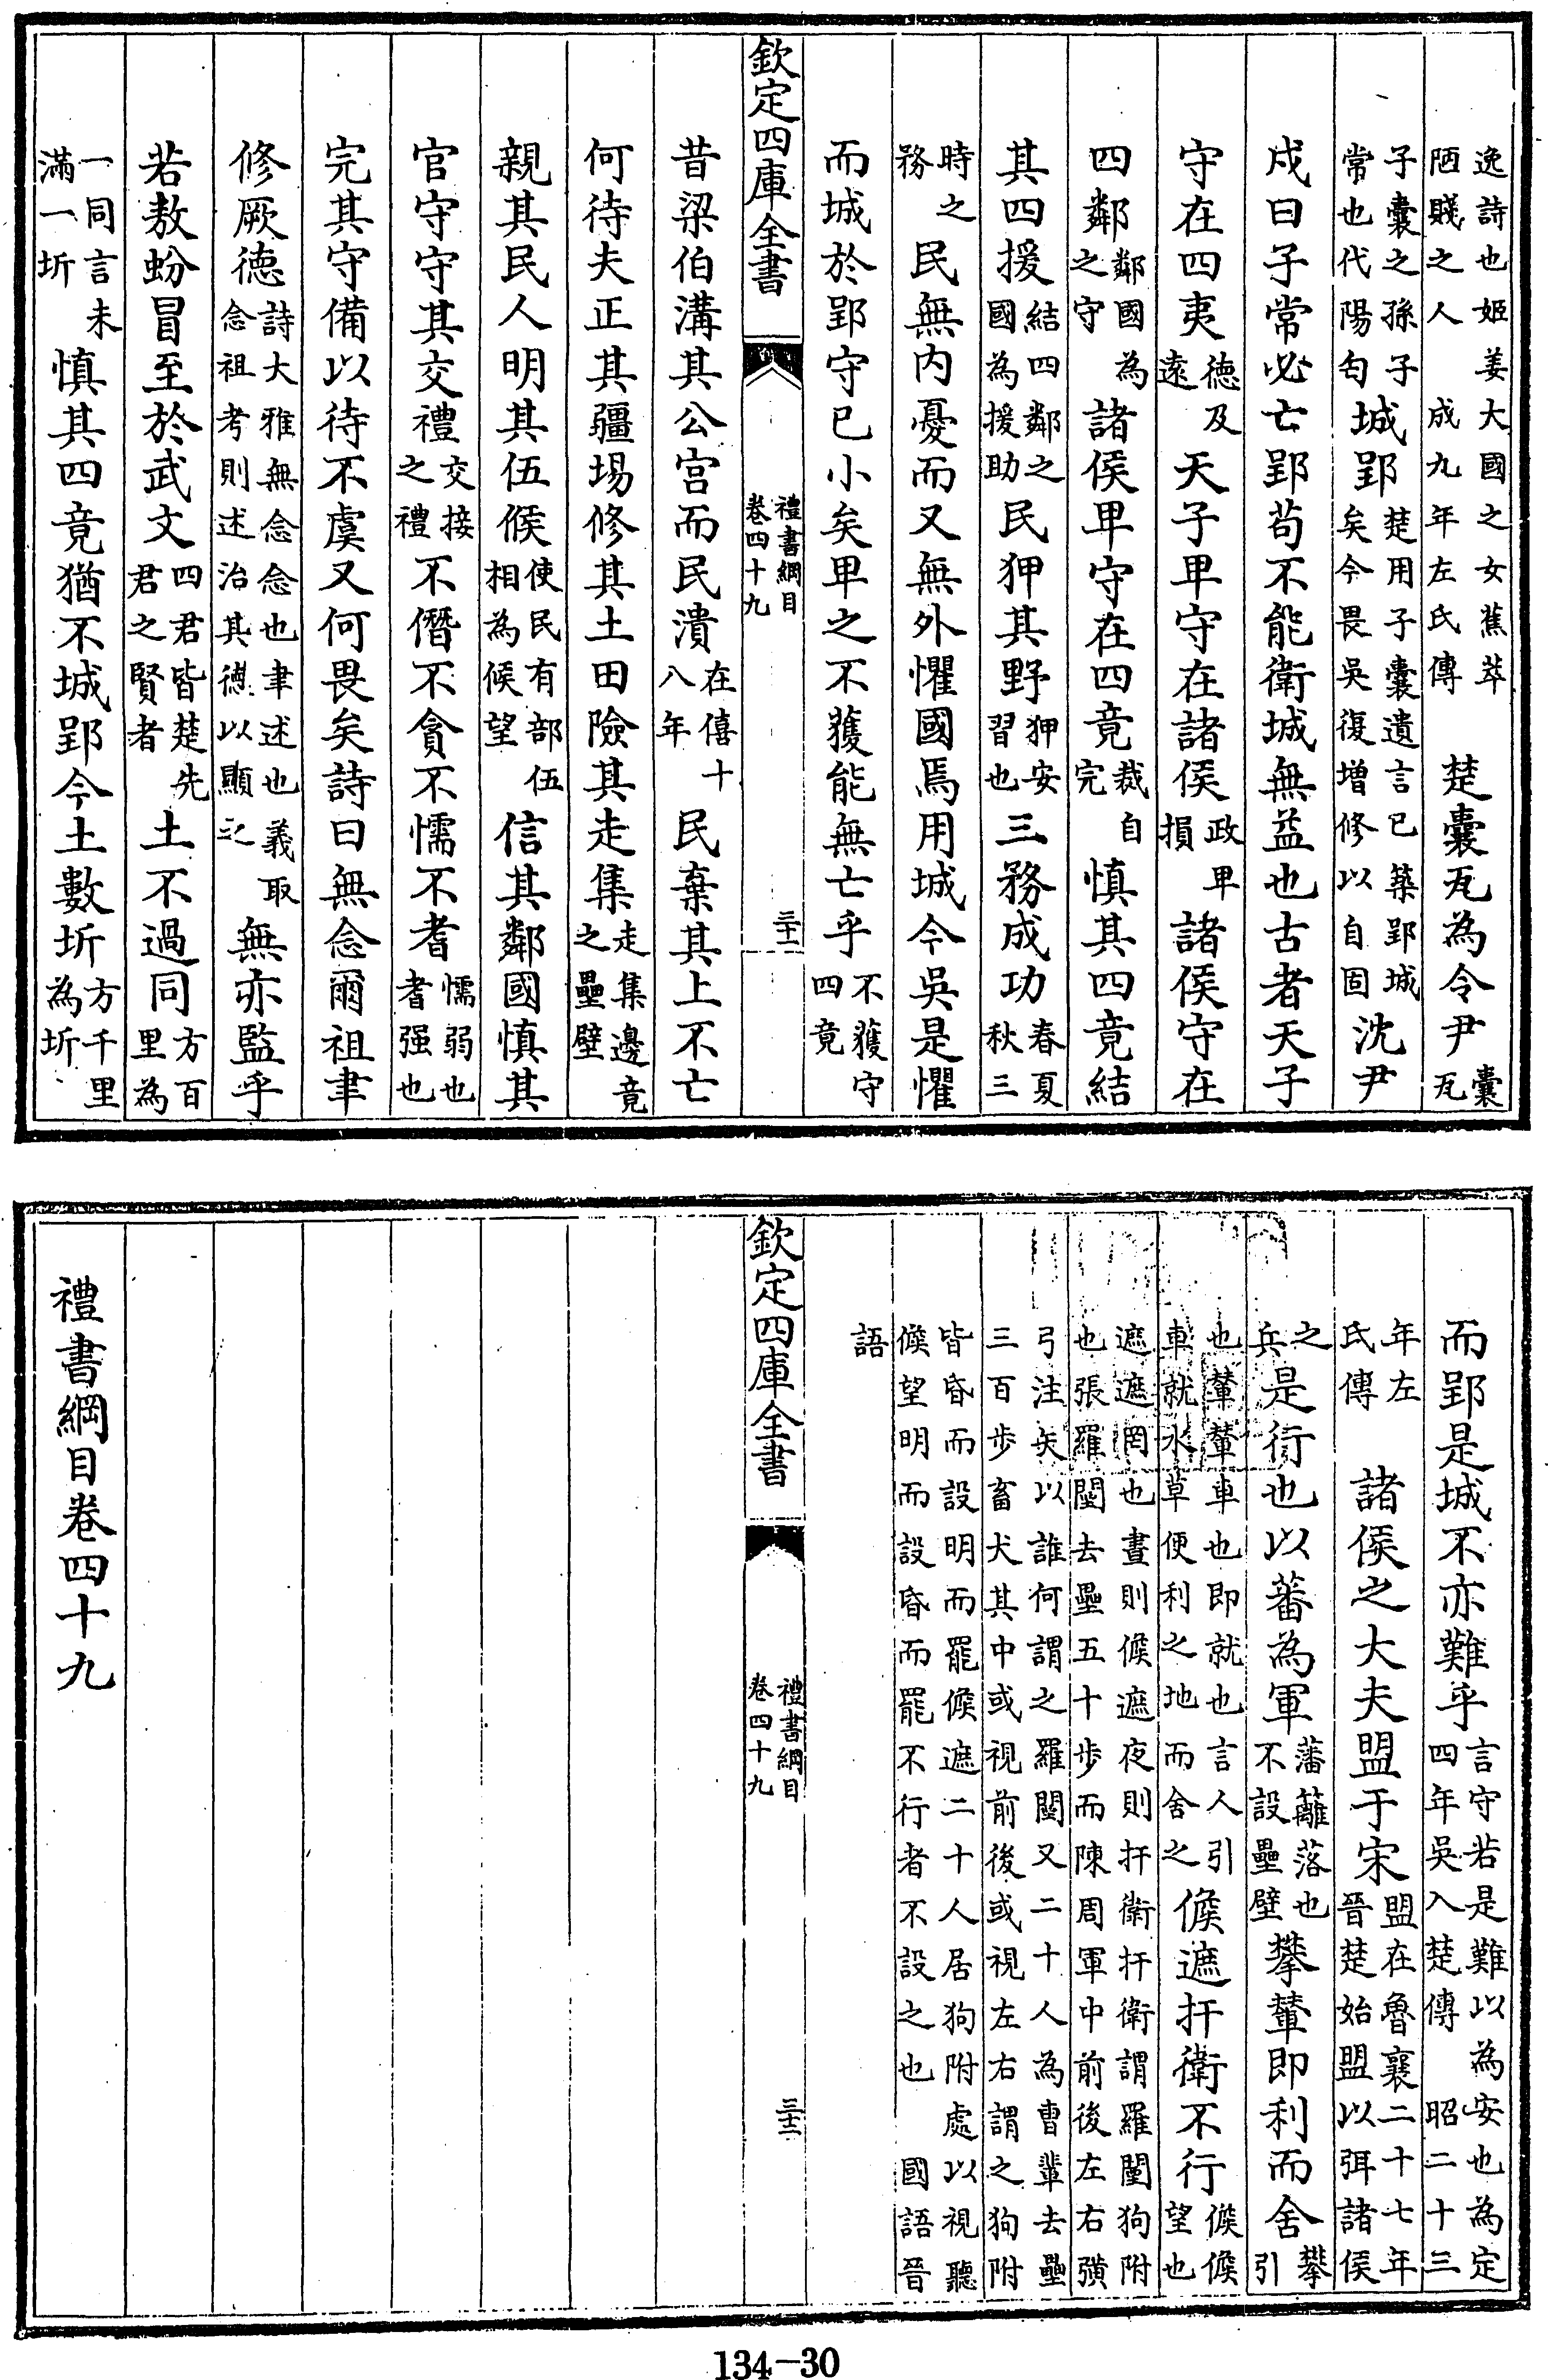 逸詩也姬姜大國之女蕉萃陋賤之人　成九年左氏傳　楚囊瓦為令尹囊瓦
子囊之孫子常也代陽匄城郢楚用子囊遺言已築郢城矣今畏吳復增修以自固沈尹
戍曰子常必亡郢苟不能衛城無益也古者天子
守在四夷德及遠天子卑守在諸侯政卑損諸侯守在
四鄰鄰國為之守諸侯卑守在四竟裁自完慎其四竟結
其四援結四鄰之國為援助民狎其野狎安習也三務成功春夏秋三
時之務民無內憂而又無外懼國焉用城今吳是懼
而城於郢守已小矣卑之不獲能無亡乎不獲守四竟
欽定四庫全書
禮書綱目
卷四十九
三十一
昔梁伯溝其公宮而民潰在僖十八年民棄其上不亡
何待夫正其疆埸修其土田險其走集走集邊竟之壘壁
親其民人明其伍候使民有部伍相為候望信其鄰國慎其
官守守其交禮交接之禮不僭不貪不懦不耆懦弱也耆强也
完其守備以待不虞又何畏矣詩曰無念爾祖聿
修厥德詩大雅無念念也聿述也義取念祖考則述治其德以顯之無亦監乎
若敖蚡冒至於武文四君皆楚先君之賢者土不過同方百里為
一同言未滿一圻慎其四竟猶不城郢今土數圻方千里為圻
而郢是城不亦難乎言守若是難以為安也為定四年吳入楚傳　昭二十三
年左氏傳　諸侯之大夫盟于宋盟在魯襄二十七年晉楚始盟以弭諸侯
之兵是行也以蕃為軍藩籬落也不設壘壁攀輦即利而舍攀引
也輦輦車也即就也言人引車就水草便利之地而舍之候遮扞衛不行候候望也
遮遮罔也晝則候遮夜則扞衛扞衛謂羅闉狗附也張羅闉去壘五十步而陳周軍中前後左右彍
弓注矢以誰何謂之羅闉又二十人為曹輩去壘三百步畜犬其中或視前後或視左右謂之狗附
皆昏而設明而罷候遮二十人居狗附處以視聽候望明而設昏而罷不行者不設之也　國語晉
語
欽定四庫全書
禮書綱目
卷四十九
三十二
禮書綱目卷四十九
134-30